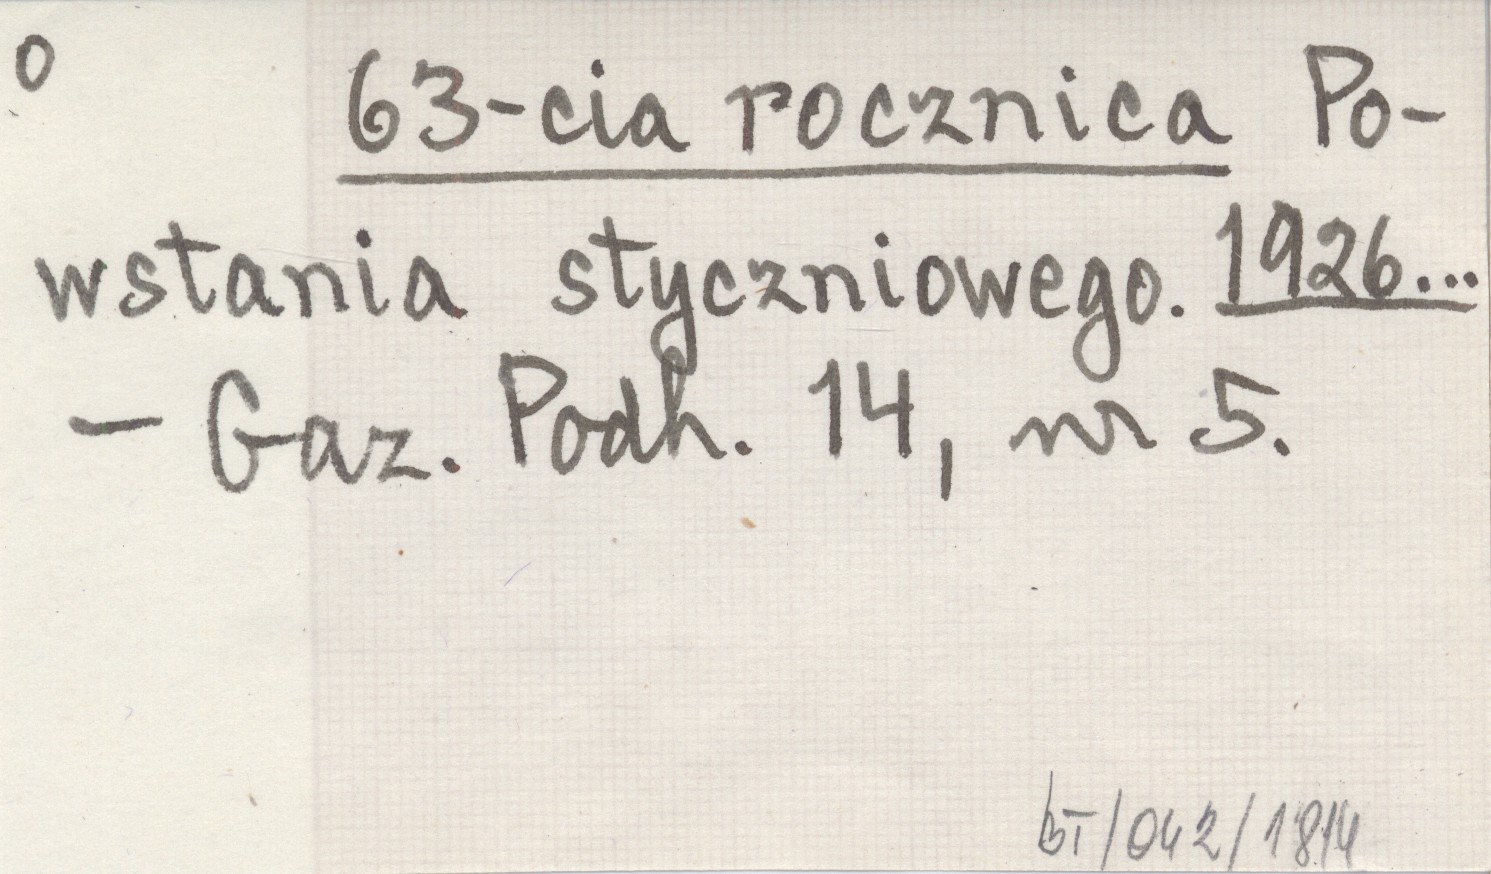 0
63-cia rocznica Po-
wstania styczniowego. 1926...
- Gaz. Podh. 14, nr 5.
BT/042/1814